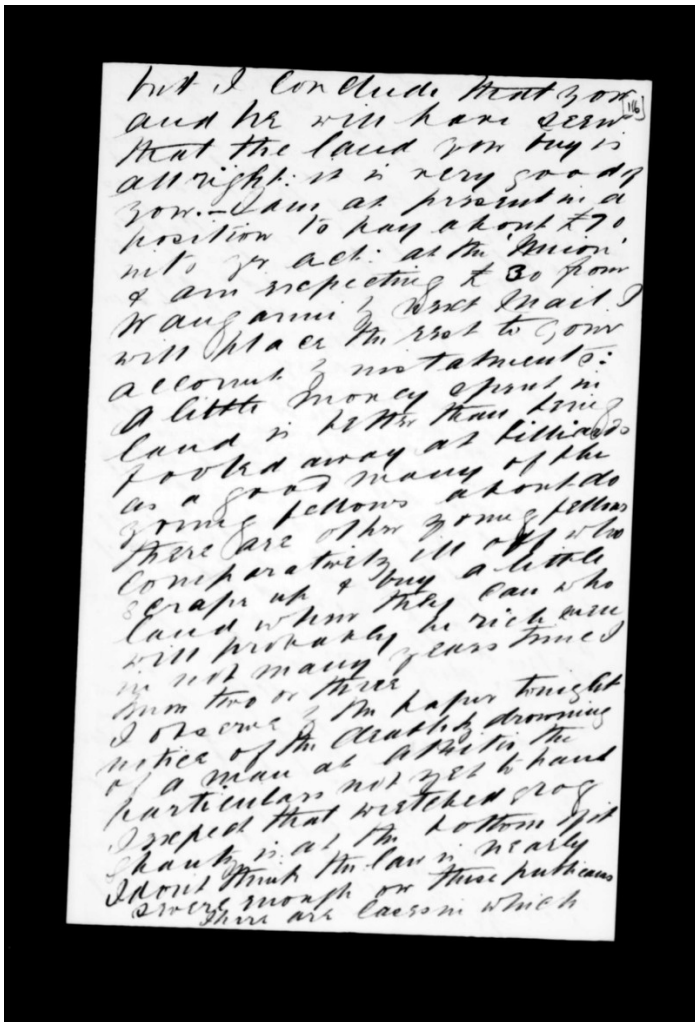 but I conclude that you
[116]
and he will have seen
that the land you buy is
all right: it is very good of
you. – I am at present in a
position to pay about £70
into yr act: at the 'Union'
& am expecting £30 from
Wanganui by next mail I
will place the rest to your
account by instalments:
A little money spent in
land is better than being
fooled away at billiards
as a good many of the
young fellows about do
there are other young fellows
comparatively ill off who
scrape up & buy a little
land when they can who
will probably be rich men
in not many years time I
know two or three
I observe by the paper tonight
notice of the death by drowning
of a man at the
particulars not yet to hand
I expect that wretched grog
shanty is at the bottom of it
I don't think the law is nearly
severe enough on these publicans
There are cases in which